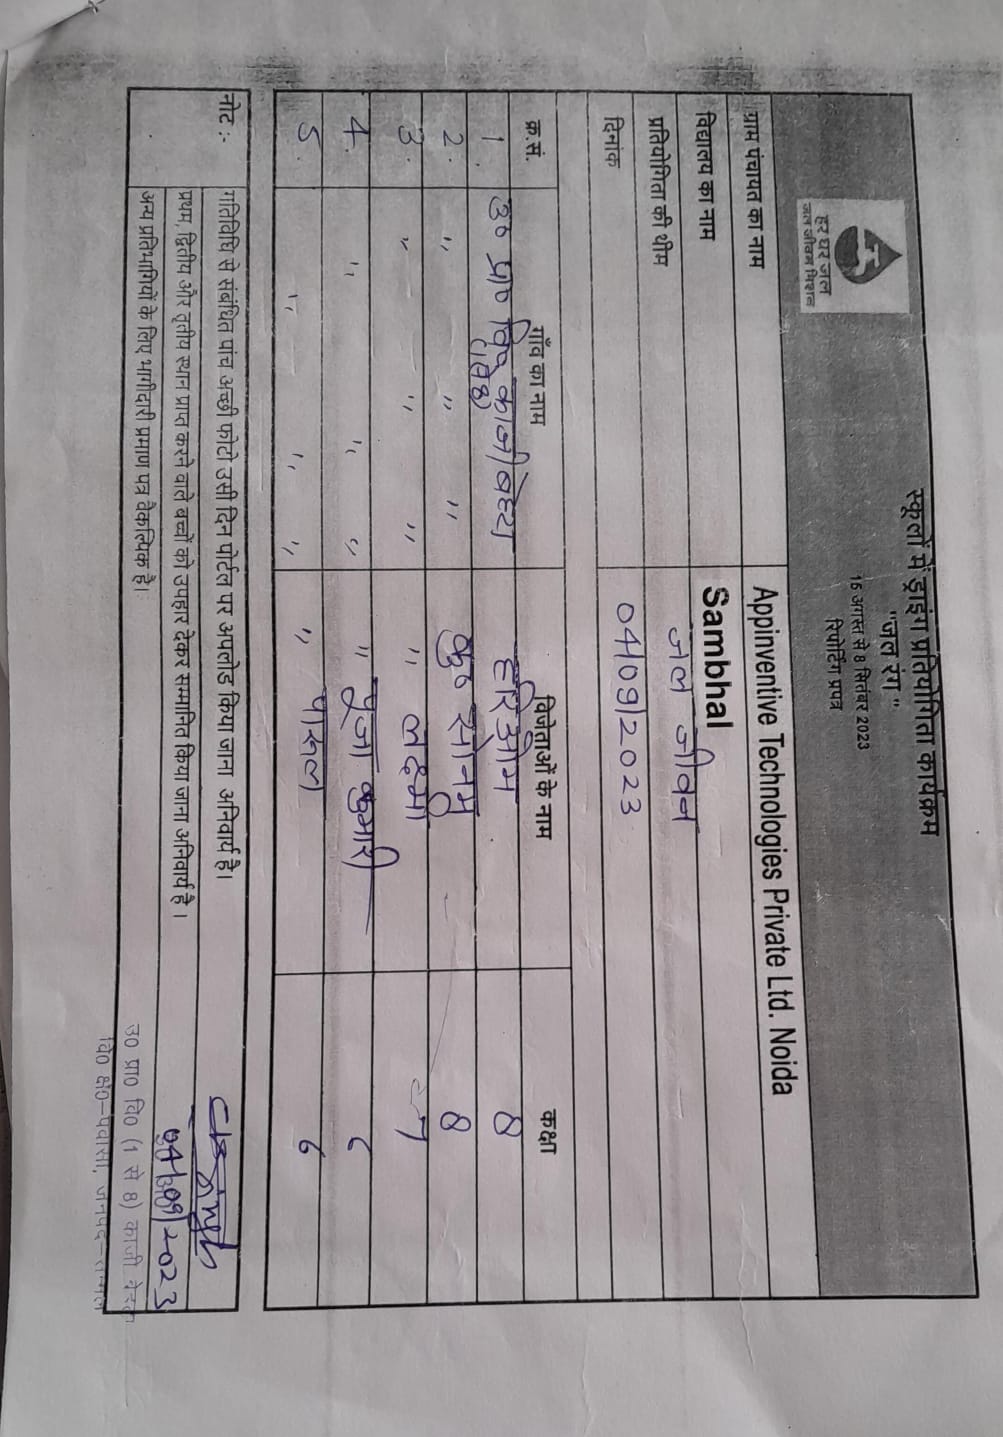 स्कूलों में ड्राइंग प्रतियोगिता कार्यक्रम
"जल रंग"
16 अगस्त से 8 सितंबर 2023
रिपोर्टिंग प्रपत्र
हर घर जल
जल जीवन मिशन
ग्राम पंचायत का नाम Appinventive Technologies Private Ltd. Noida
विद्यालय का नाम Sambhal
प्रतियोगिता की थीम जल जीवन
दिनांक 04/09/2023
क्र.सं. गाँव का नाम विजेताओं के नाम कक्षा
1. उ० प्रा० वि० काजी बेहटा हरिओम 8
(1 से 8)
2. " " " कु० सोनम 8
3. " " " " लक्ष्मी 7
4. " " " " पूजा कुमारी 6
5. " " " " पारुल 6
नोट :- गतिविधि से संबंधित पांच अच्छी फोटो उसी दिन पोर्टल पर अपलोड किया जाना अनिवार्य है।
प्रथम, द्वितीय और तृतीय स्थान प्राप्त करने वाले बच्चों को उपहार देकर सम्मानित किया जाना अनिवार्य है ।
अन्य प्रतिभागियों के लिए भागीदारी प्रमाण पत्र वैकल्पिक है।
04/09/2023
उ० प्रा० वि० (1 से 8) काजी बेहटा
वि० क्षे०-पवांसा, जनपद-सम्भल